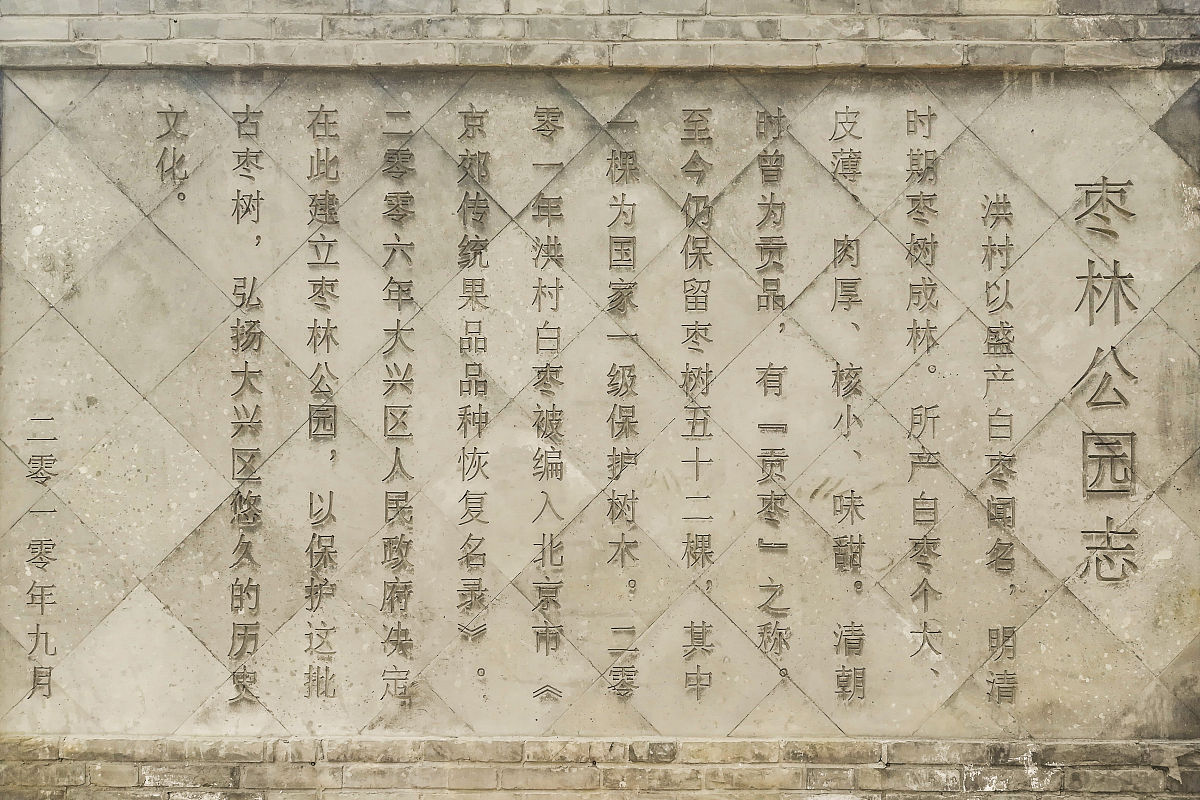 枣林公园志
洪村以盛产白枣闻名，明清
时期枣树成林。所产白枣个大、
皮薄、肉厚、核小、味甜。清朝
时曾为贡品，有『贡枣』之称。
至今仍保留枣树五十二棵，其中
一棵为国家一级保护树木。二零
零一年洪村白枣被编入北京市《
京郊传统果品品种恢复名录》。
二零零六年大兴区人民政府决定
在此建立枣林公园，以保护这批
古枣树，弘扬大兴区悠久的历史
文化。
二零一零年九月